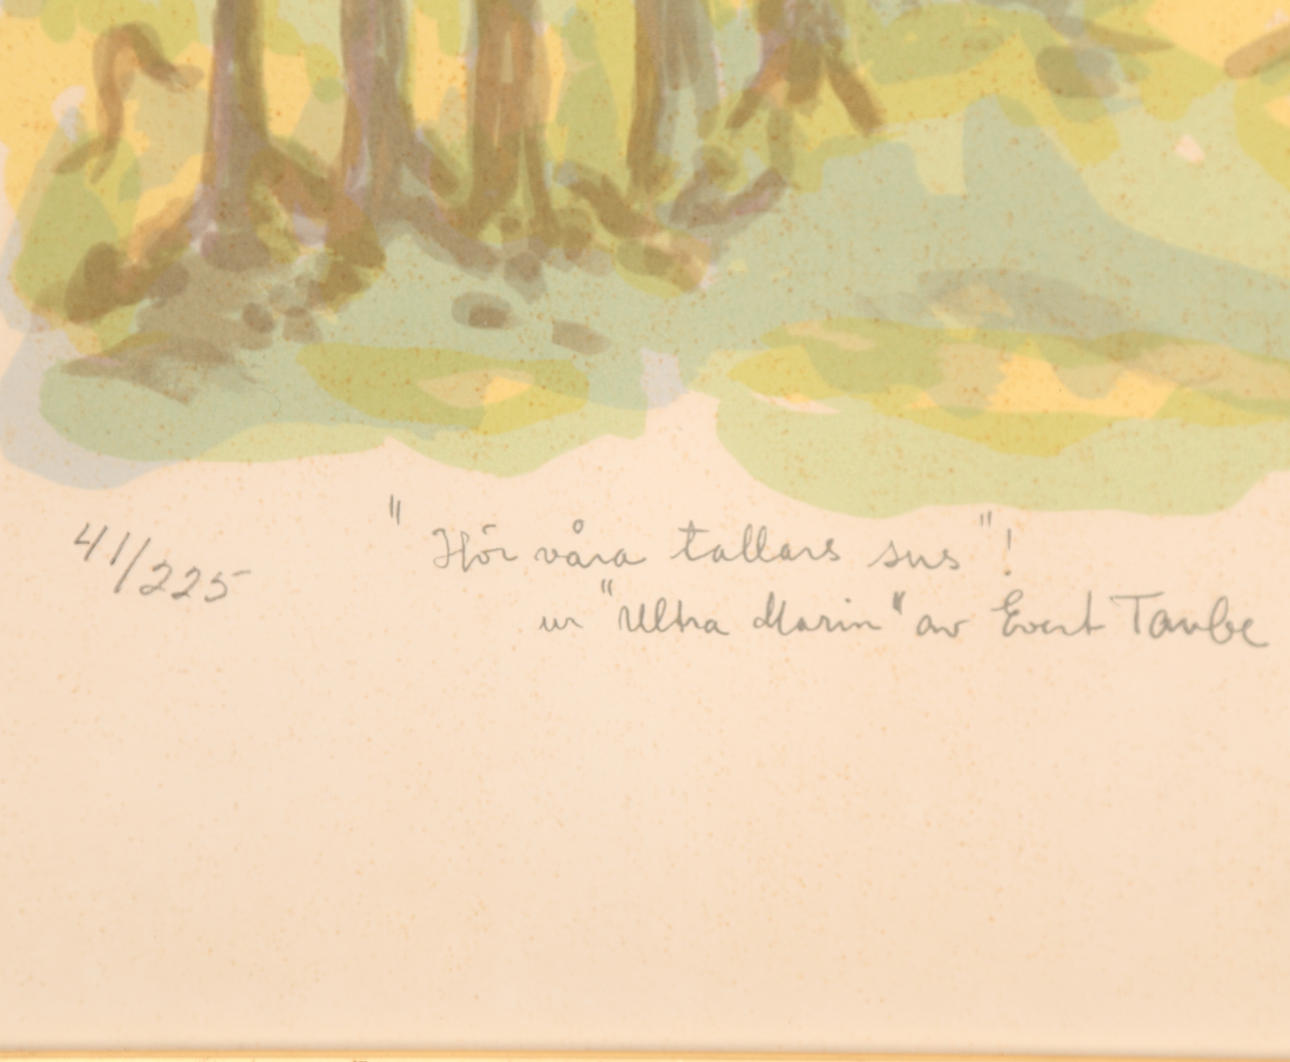 41/225
"Hör våra tallars sus"!
ur "Ultra Marin" av Evert Taube